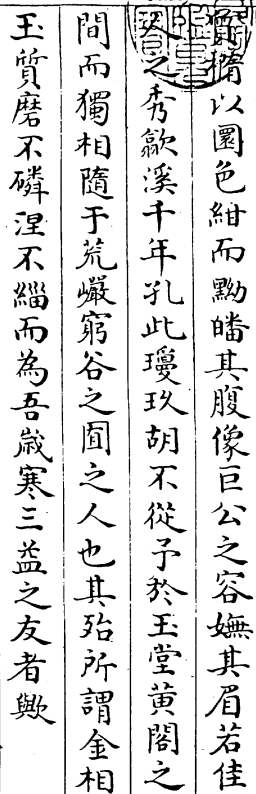 質撱以圜色紺而黝皤其腹像巨公之容嫵其眉若佳
人之秀歙溪千年孔此瓊玖胡不從予於玉堂黃閣之
間而獨相隨于荒巗窮谷之圁之人也其殆所謂金相
玉質磨不磷涅不緇而為吾嵗寒三益之友者歟